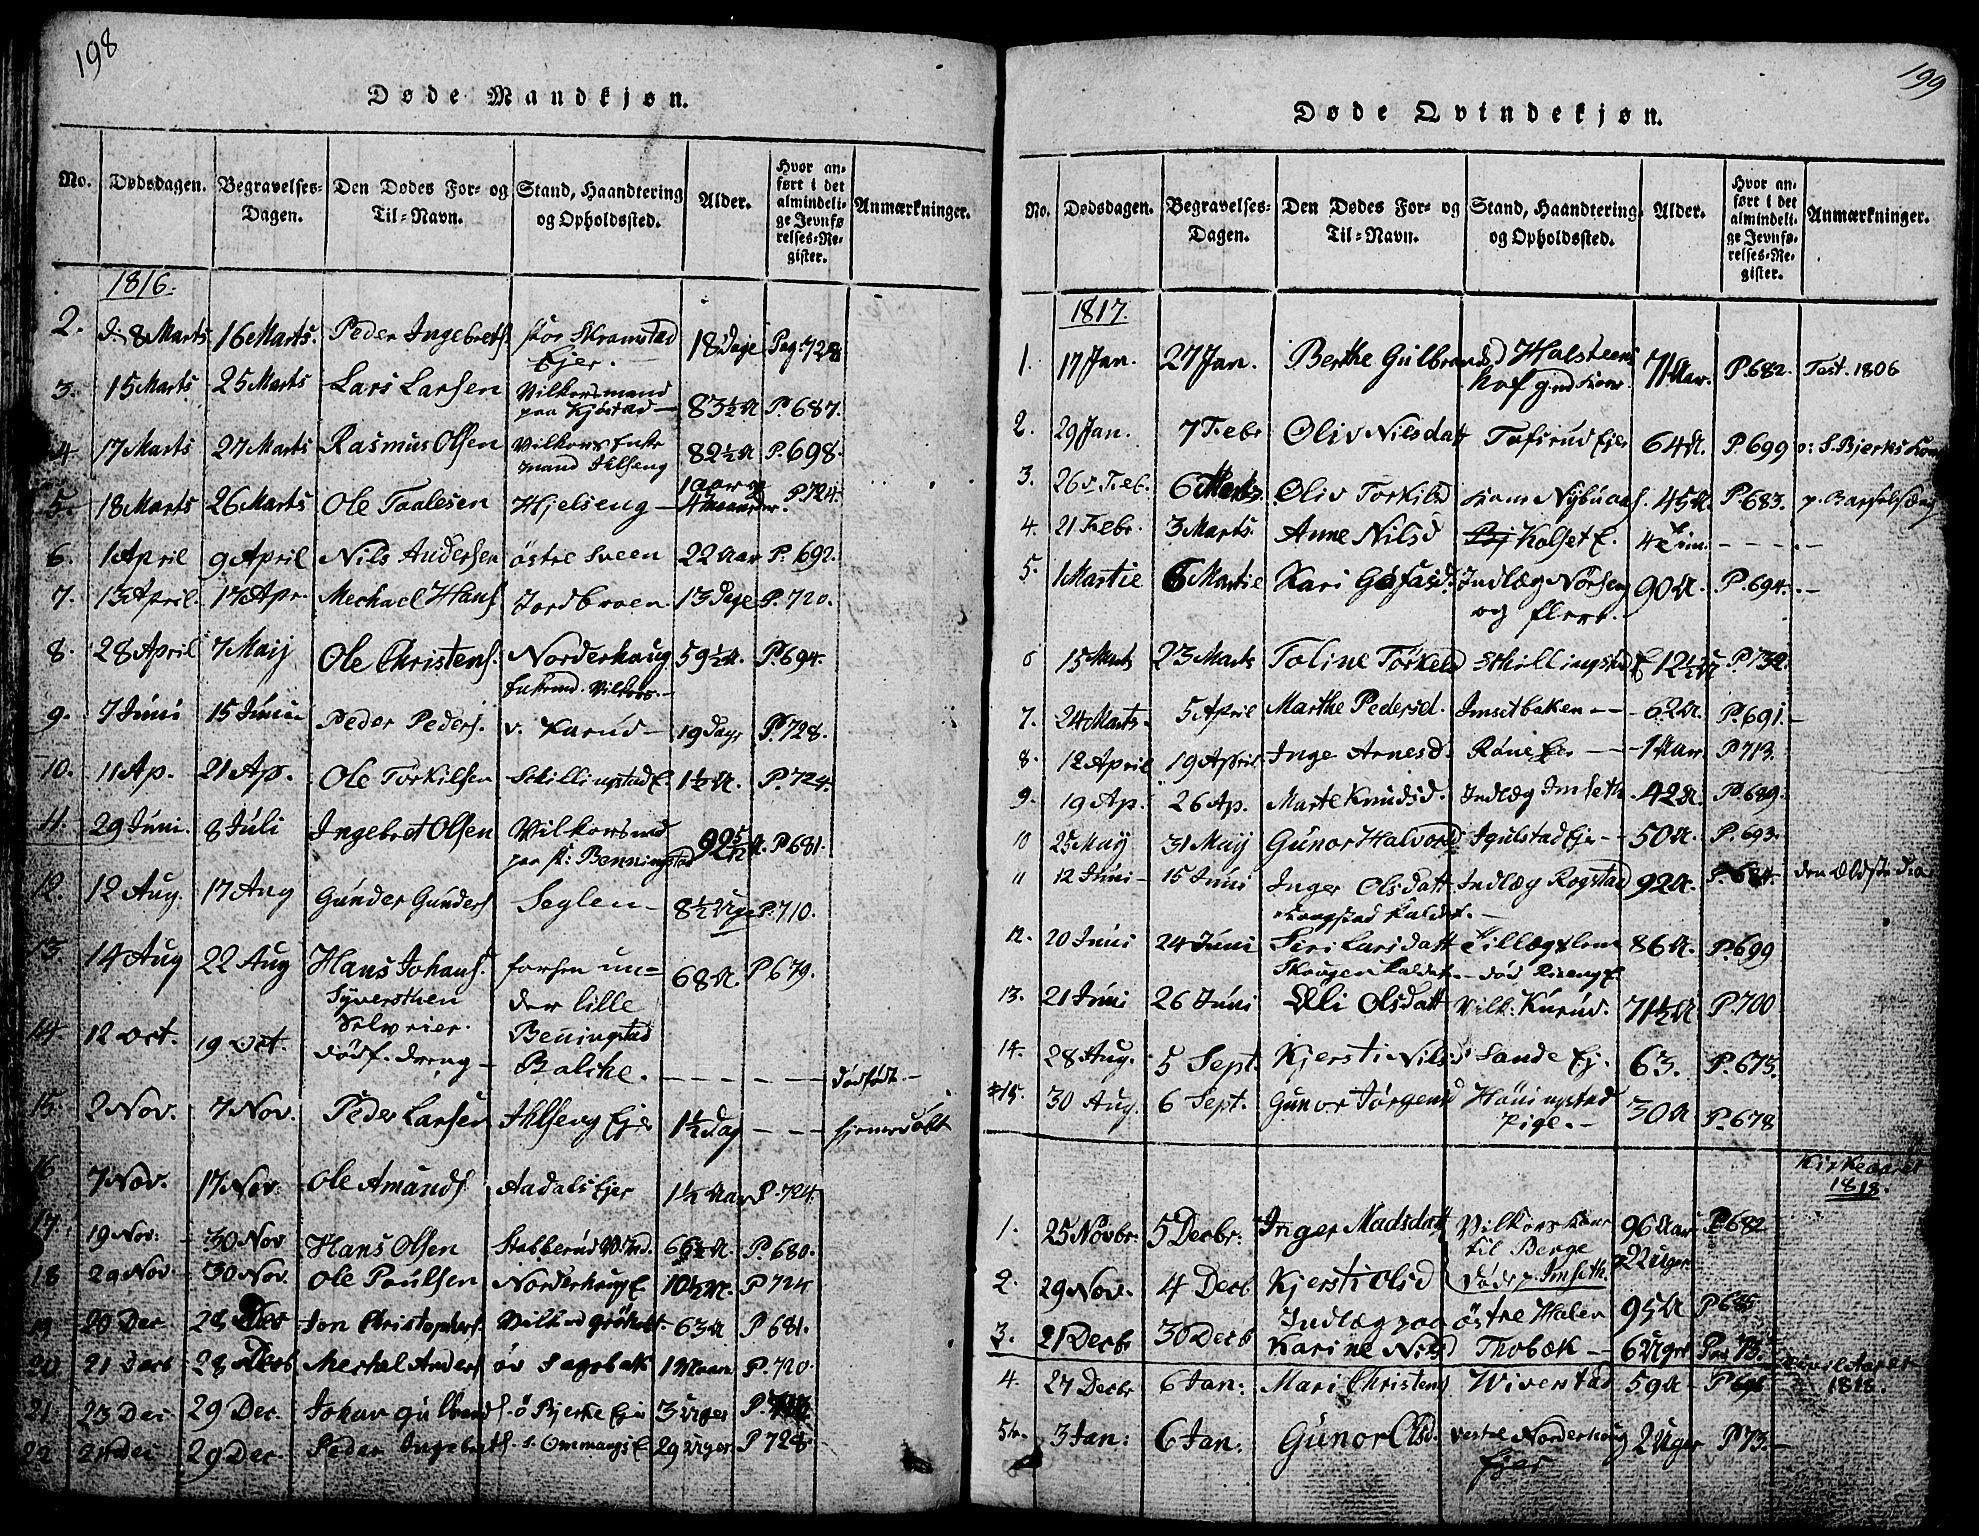 198
Døde Mandkjøn.
No. Dødsdagen. Begravelses-Dagen. Den Dødes For- og Til-Navn. Stand, Haandtering og Opholdssted. Alder. Hvor anført i det almindelige Jevnførelses-Register. Anmærkninger.
1816.
2. d. 8 Marts 16 Marts. Peder Ingebrets. stor Skramstad Ejer. 18 Dage Pag. 728
3. 15 Marts 25 Marts Lars Larsen Vilkorsmand paa Kjøstad 83½ A P. 687.
4 17 Marts 27 Marts Rasmus Olsen Vilkors Enkemand Ihlseng 82½ A P. 698.
5. 18 Marts 26 Marts Ole Taalesen Hjelseng 1 aar og 4 maaneder. P. 724.
6. 1 April 9 April Nils Andersen østre Sveen 22 Aar P. 692.
7. 13 April. 17 Apr. Mechael Hans. Jordbroen 13 Dage P. 720.
8. 28 April 7 Maij Ole Christens. Norderhoug Enkemd. Vilkors. 59½ A. P. 694.
9. 7 Juni 15 Juni Peder Peders. v. Karud 19 Dage P. 728.
10. 11 Ap. 21 Ap. Ole Torkilsen Skillingstad E. 1½ A. P. 724.
11. 29 Juni. 8 Juli Ingebret Olsen Vilkorsmd paa st: Benningstad 92 5/12 A. P. 681.
12. 12 Aug. 17 Aug Gunder Gunders. Seglen 8½ Uge P. 710.
13 14 Aug 22 Aug Hans Johans. Syversthen Selveier. forsen under lille Benningstad 68 A. P. 679.
14. 12 Oct. 19 Oct. dødf. dreng Balche. dødfødt.
15. 2 Nov. 7 Nov. Peder Larsen Ihlseng Ejer 1½ Dag hjemedøbt
16 7 Nov. 17 Nov. Ole Amunds. Aadals Ejer 1½ Aar P. 724.
17. 19 Nov: 30 Nov Hans Olsen Stabberud V.Md. 66½ A. P. 680.
18 29 Nov 30 Nov. Ole Poulsen Norderhoug E 10½ A. P 724
19 20 Dec 28 Dec Jon Christophers. 63 A P 681.
20 21 Decb 28 Decb Mechal Anders. øv Sagebak 1 Maan P. 720.
21 23 Dec 29 Dec. Johan Gulbrands. ø Bjerke Eje 3 Uger P.
22 29 Dec Peder Ingebrets. s. Ommangs E. 29 Uger. P 728.
199
Døde Qvindekjøn.
No. Dødsdagen. Begravelses-Dagen. Den Dødes For- og Til-Navn. Stand, Haandtering og Opholdssted. Alder. Hvor anført i det almindelige Jevnførelses-Register. Anmærkninger.
1817.
1. 17 Jan. 27 Jan. Berthe Gulbrandsd Halsteens 71 Aar. P. 682. Test. 1806
2. 29 Jan. 7 Febr Oliv Nilsdatt Tofsrud Ejer 64 A. P. 699 o: S. Bjerks Kone
3. 26 Feb. 6 Marts. Oliv Torkilsd 45 A. P. 683. p. Barselseng
4. 21 Febr. 3 Marts. Anne Nilsd Kolset E. 4 Tim.
5. 1 Martie 6 Martie Kari Indlæg Nörseng og flere. 90 A. P. 694.
6 15 Marts 23 Marts Toline Törkelsd Skillingstad E 12½ P. 732.
7. 24 Marts 5 April Marthe Pedersd. Imsetbaken 62 A. P. 691.
8. 12 April 19 April Inge Arnesd. Røne Ejer 1 Aar P. 713.
9. 19 Ap. 26 Ap. Marte Knudsd. Indlæg Imseth 42 A. P. 689.
10 25 Maij 31 Maij Gunor Halvorsd Igulstad Eje 50 A P. 693.
11 12 Juni 15 Juni Inger Olsdatt Rongstad kaldet. Indlæg Rogstad 92 A. P. 684. den Ældste
12. 20 Juni 24 Juni Siri Larsdatt Skougen kaldet. Tillægslem død Rieng E. 86 A. P. 699
13. 21 Juni 26 Juni Olli Olsdatt Vilk: Kurud. 71½ A P. 700
14. 28 Aug. 5 Sept. Kjersti Nilsd Sande Ej. 63. P. 673.
15. 30 Aug. 6 Sept. Gunor Jørgensd Höningstad Pige. 30 A P. 678
Kirkeaaret 1818.
1. 25 Novbr. 5 Decbr: Inger Madsdatt Vilkors Kone til Berge døde p. Imseth. 96 Aar 22 Uger P 682
2. 29 Nov. 4 Decb Kjersti Olsd Indlæg paa østre Halen 95 A P 685
3. 21 Decbr 30 Decb Karine Nilsd Thobæk 6 Uger P. 73.
Civil Aaret 1818.
4. 27 Decbr 6 Jan: Mari Christensd Wiverstad 59 A P 696
5te. 3 Jan: 6 Jan. Gunor Olsd. vestre Norderhoug Ejer 2 Uger P 73.